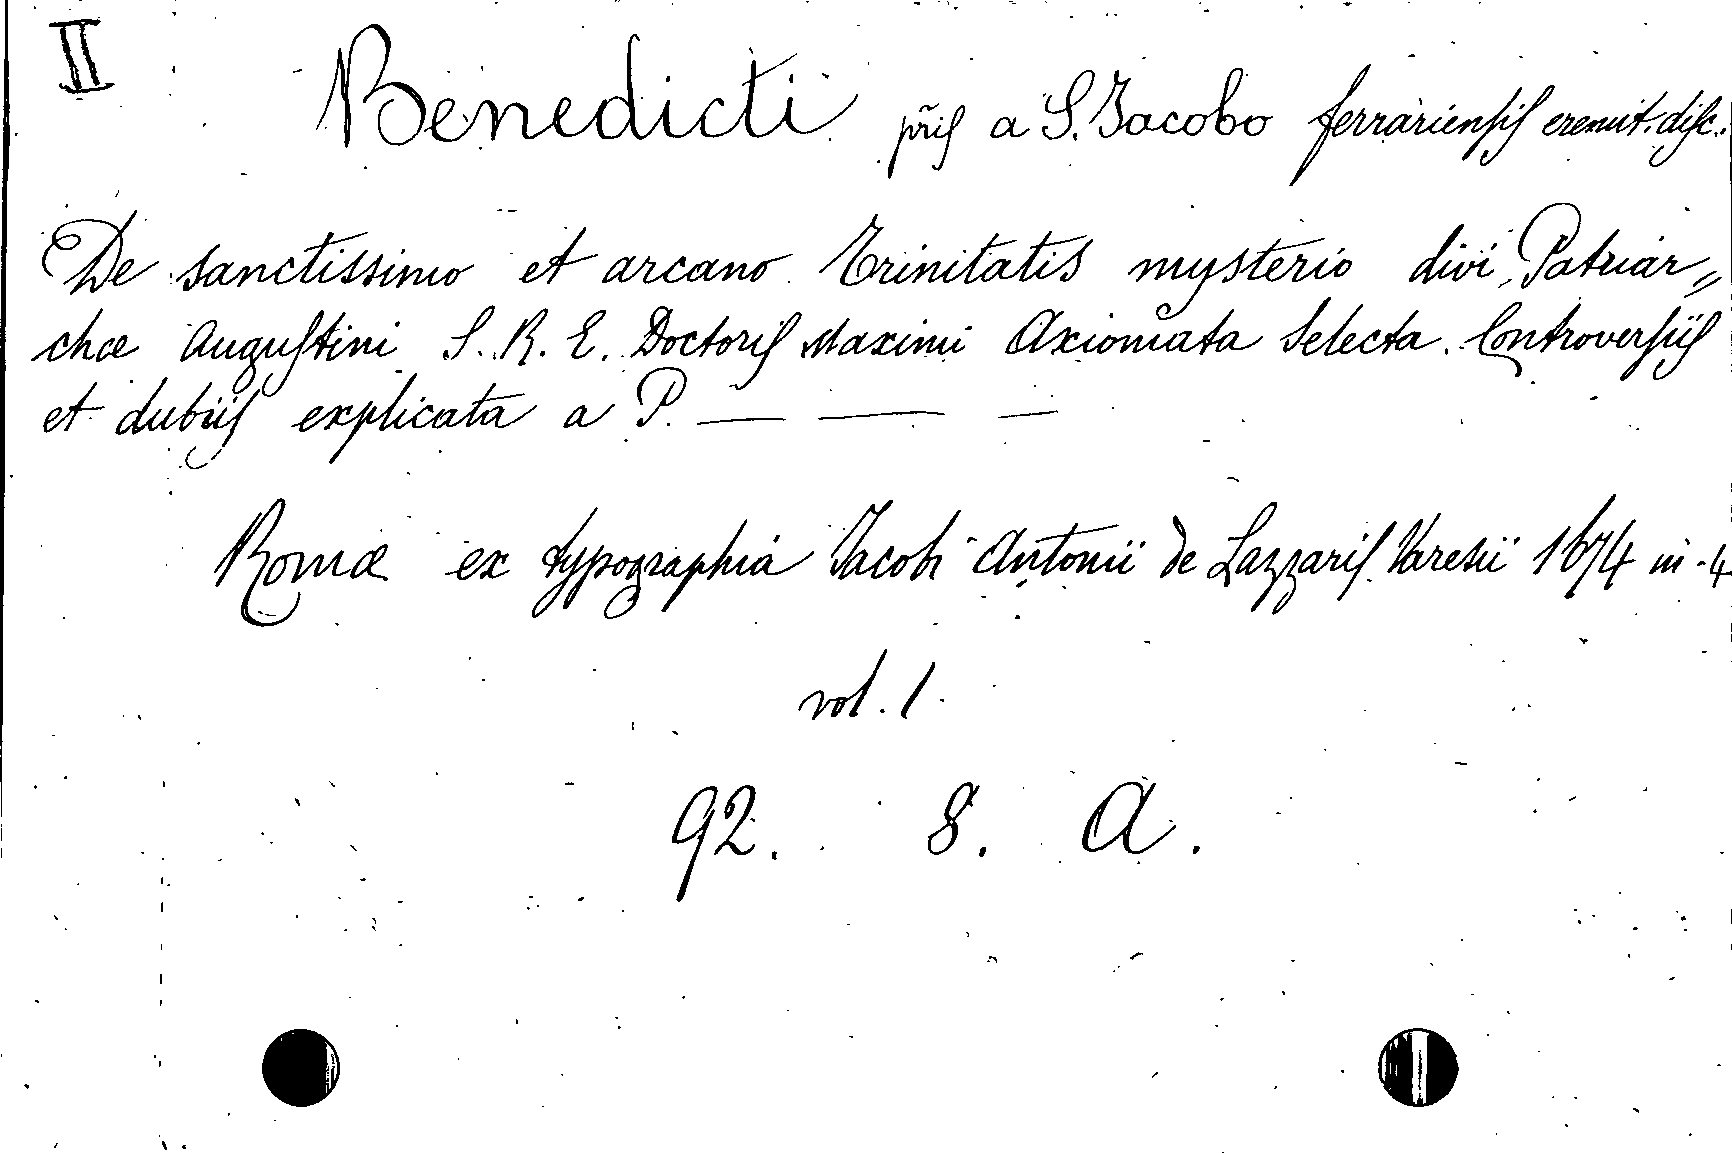 II
Benedicti pr̃is a S. Jacobo ferrariensis eremit. disc.
De sanctissimo et arcano Trinitatis mysterio divi Patriar„
chæ Augustini S. R. E. Doctoris Maximi Axiomata Selecta. Controversiis
et dubiis explicata a P. — — —
Romæ ex typographia Jacobi Antonii de Lazzaris Varesii 1674 in-4
vol. 1.
92. 8. A.